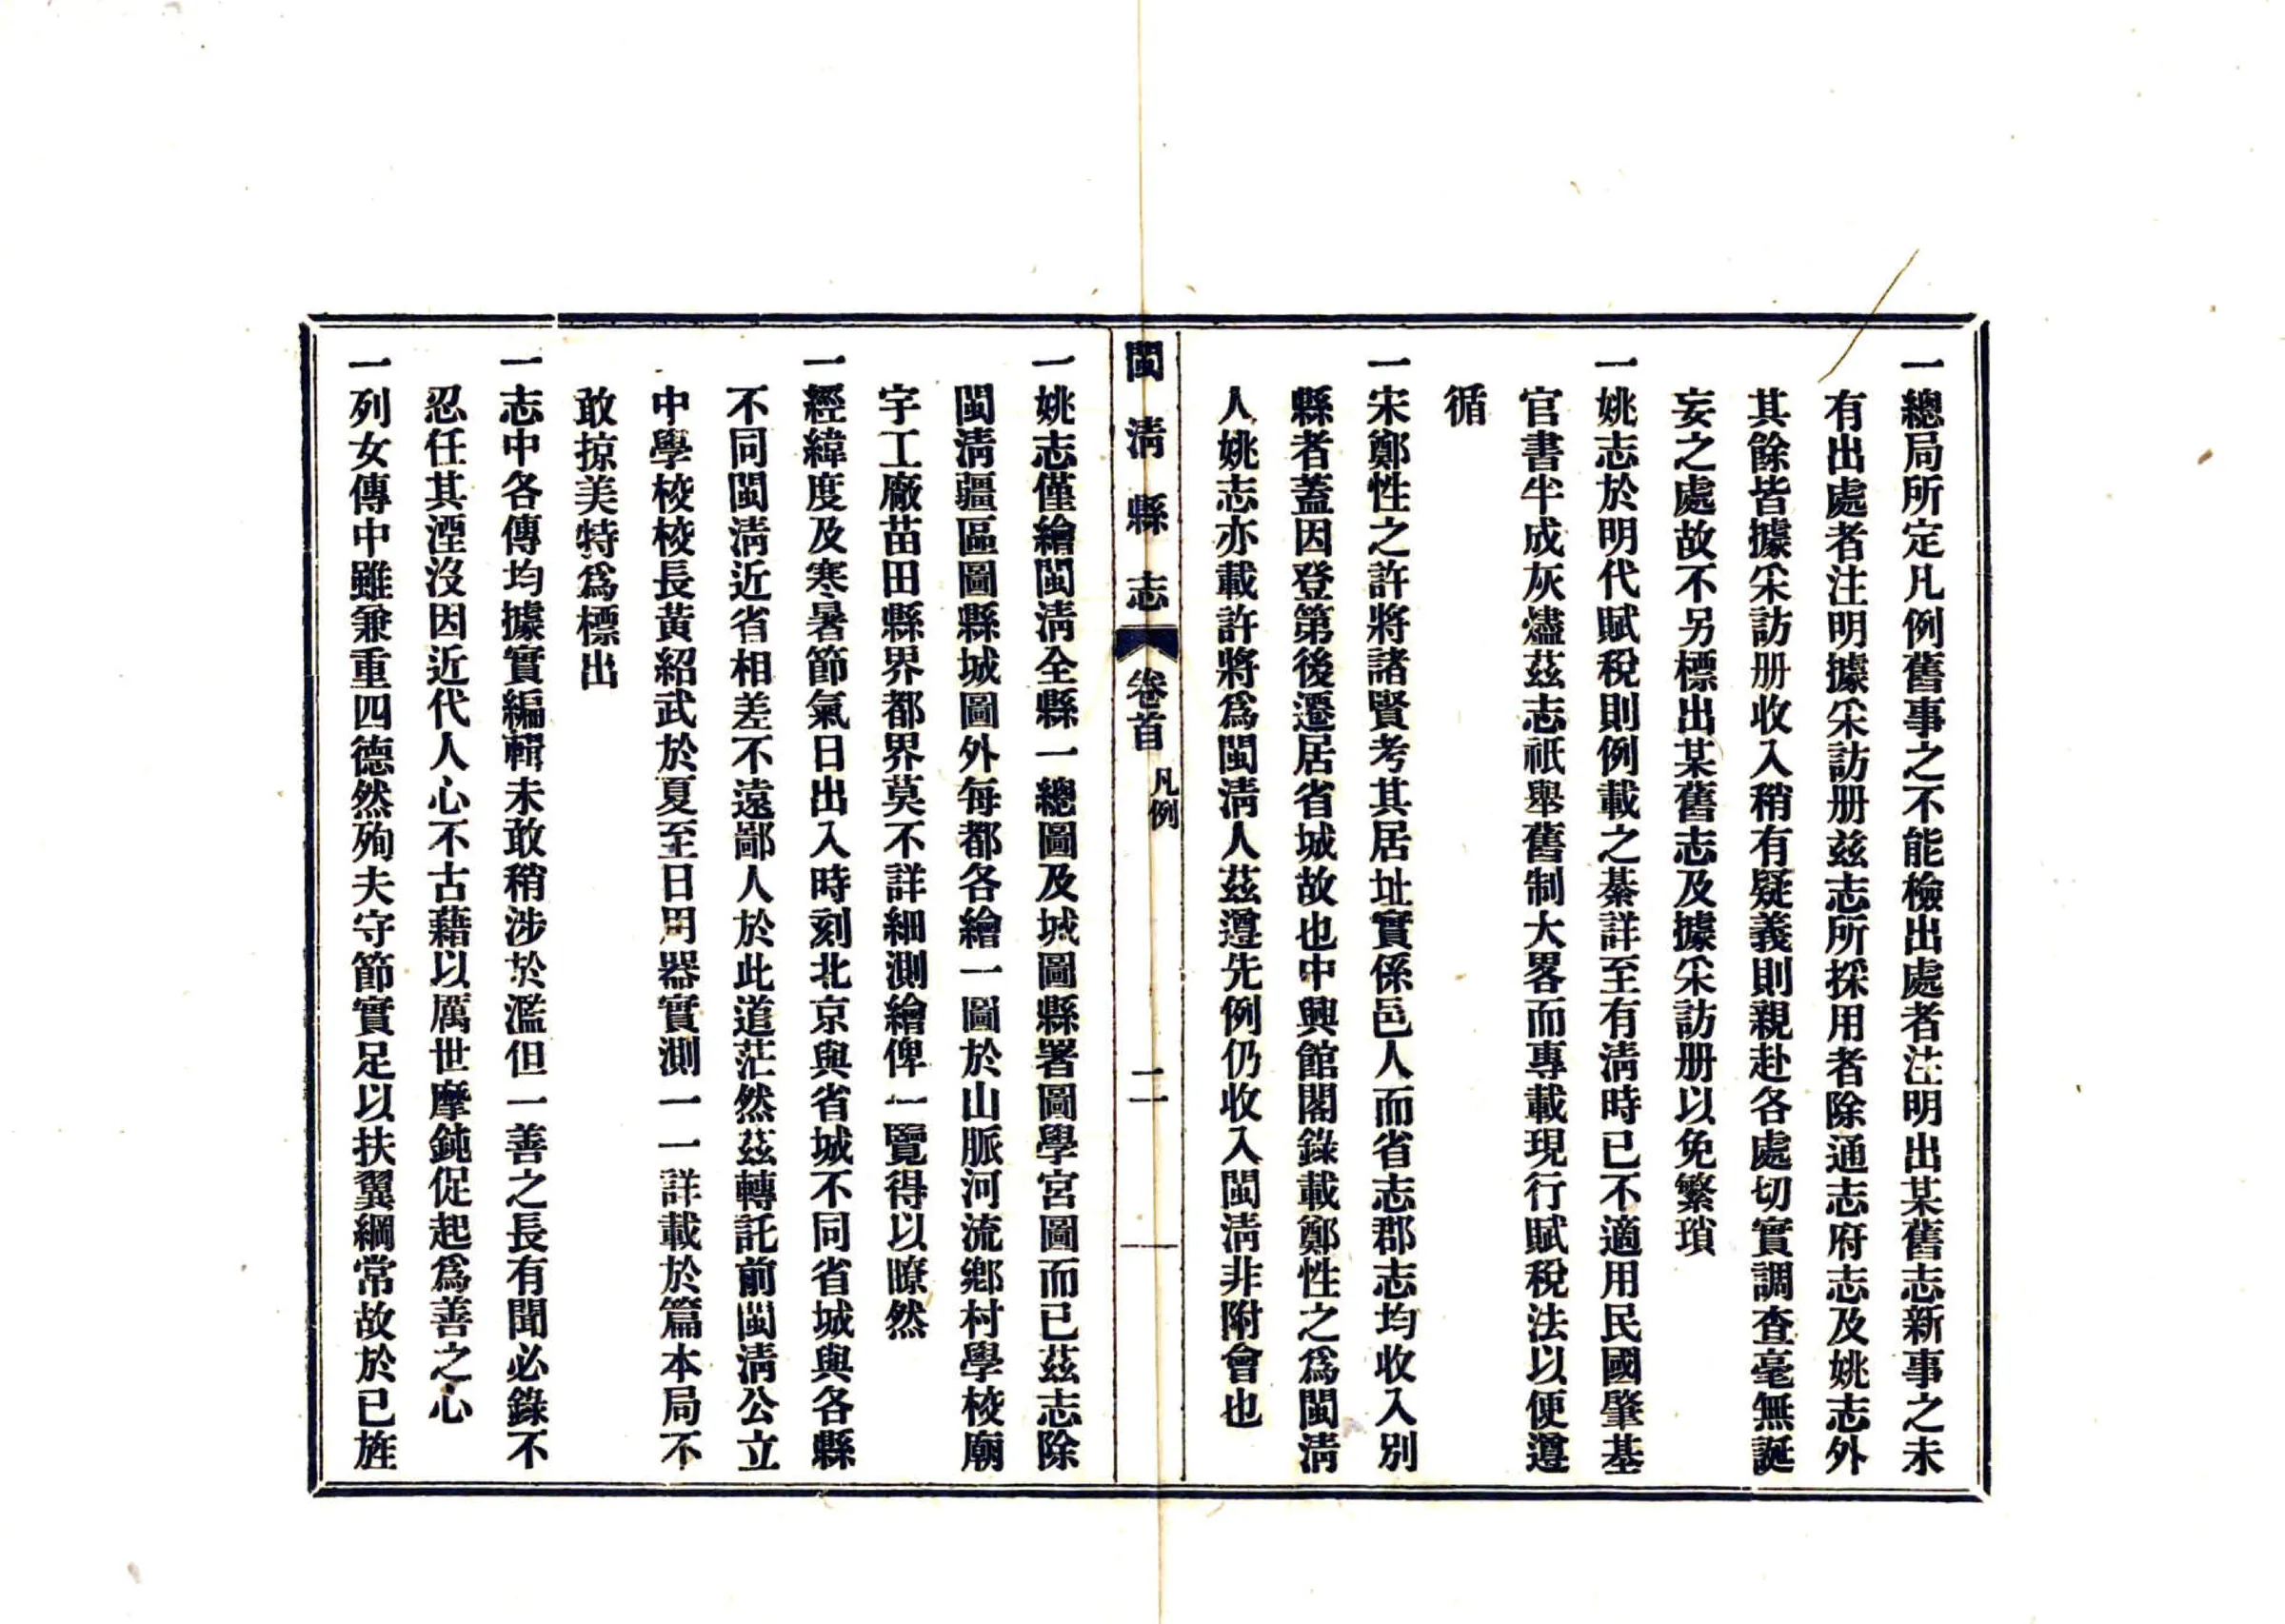 一總局所定凡例舊事之不能檢出處者注明出某舊志新事之未
有出處者注明據采訪册兹志所採用者除通志府志及姚志外
其餘皆據采訪册收入稍有疑義則親赴各處切實調查毫無誕
妄之處故不另標出某舊志及據采訪册以免繁瑣
一姚志於明代賦稅則例載之綦詳至有淸時已不適用民國肇基
官書半成灰燼茲志祇舉舊制大畧而專載現行賦稅法以便遵
循
一宋鄭性之許將諸賢考其居址實係邑人而省志郡志均收入別
縣者蓋因登第後遷居省城故也中興館閣錄載鄭性之爲閩淸
人姚志亦載許將爲閩淸人茲遵先例仍收入閩淸非附會也
閩淸縣志 卷首 凡例 二
一姚志僅繪閩淸全縣一總圖及城圖縣署圖學宮圖而已茲志除
閩淸疆區圖縣城圖外每都各繪一圖於山脈河流鄕村學校廟
宇工廠苗田縣界都界莫不詳細測繪俾一覽得以瞭然
一經緯度及寒暑節氣日出入時刻北京與省城不同省城與各縣
不同閩淸近省相差不遠鄙人於此道茫然茲轉託前閩淸公立
中學校校長黃紹武於夏至日用器實測一一詳載於篇本局不
敢掠美特爲標出
一志中各傳均據實編輯未敢稍涉於濫但一善之長有聞必錄不
忍任其湮沒因近代人心不古藉以厲世摩鈍促起爲善之心
一列女傳中雖兼重四德然殉夫守節實足以扶翼綱常故於已旌